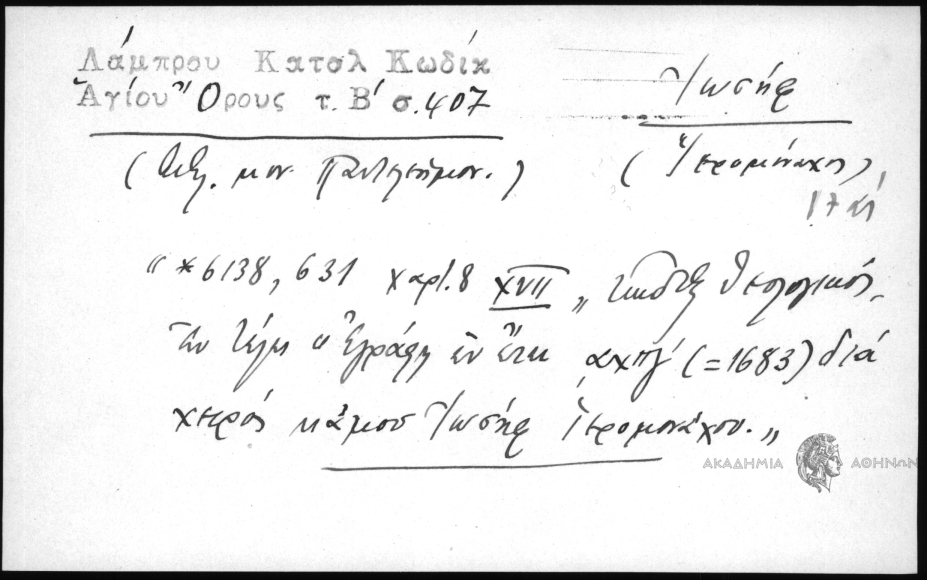 Λάμπρου Κατσλ Κωδίκ
Ἁγίου Ὄρους τ. Β' σ. 407
Ἰωσήφ
( μον. Παντελεήμον. )
( Ἱερομόναχος )
17 αἰ
" * 6138, 631 χαρτ. 8 XVII " Θεολογικός.
Ἐν τέλει " Ἐγράφη ἐν ἔτει αχπγ' (=1683) διὰ
χειρὸς κἀμοῦ Ἰωσὴφ Ἱερομονάχου. "
ΑΚΑΔΗΜΙΑ ΑΘΗΝΩΝ